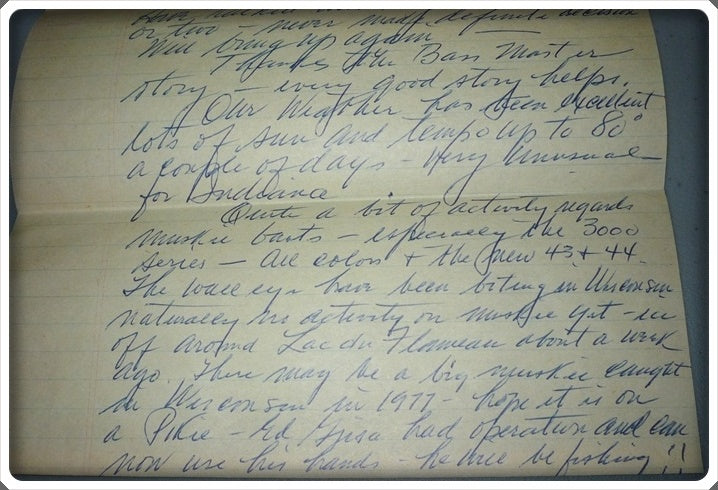 or two - never made definite decision
Will bring up again
Thanks for Bass Master
story - every good story helps.
Our Weather has been excellent
lots of sun and temps up to 80°
a couple of days - very unusual
for Indiana
Quite a bit of activity regards
muskie baits - especially the 3000
series - all colors + the new 43 + 44.
The walleyes have been biting in Wisconsin
naturally no activity on muskie yet - ice
off around Lac du Flambeau about a week
ago. There may be a big muskie caught
in Wisconsin in 1977 - hope it is on
a Pikie - Ed had operation and can
now use his hands - he will be fishing!!